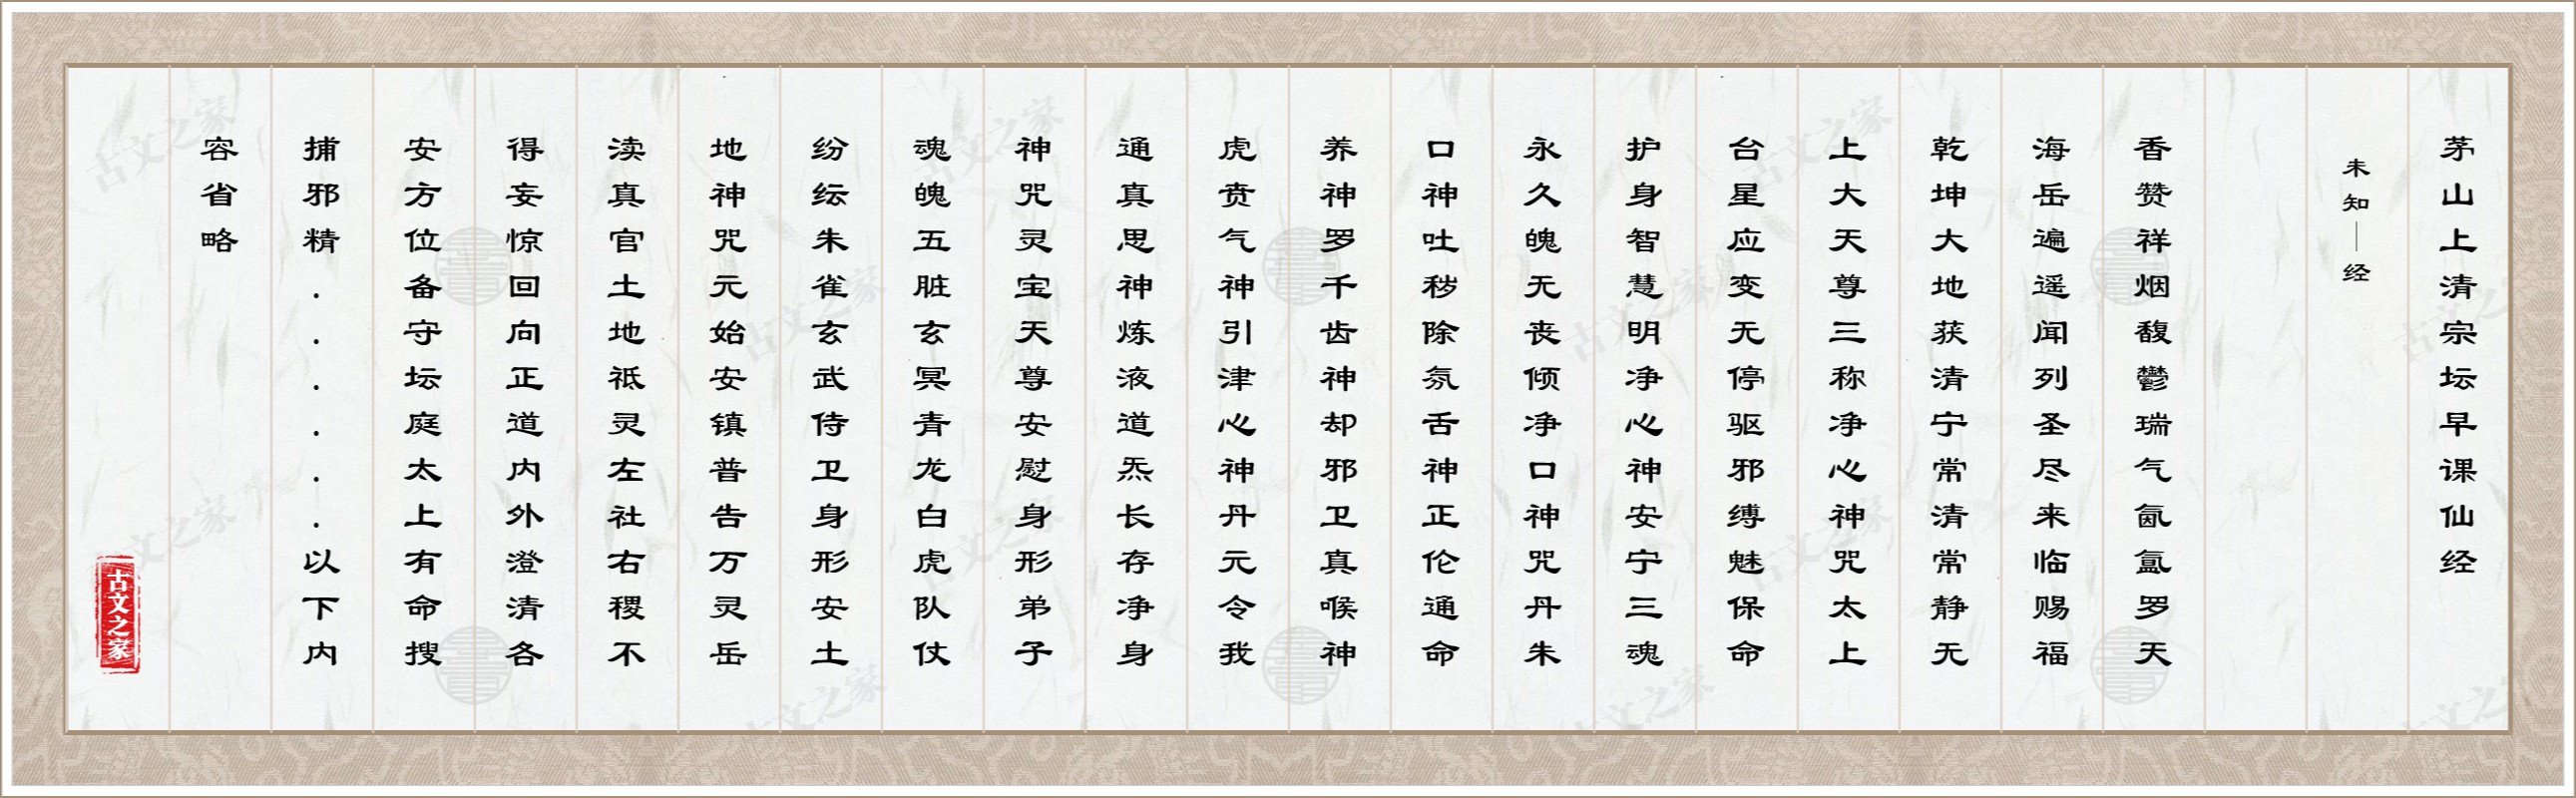 茅山上清宗坛早课仙经
未知｜经
香赞祥烟馥鬱瑞气氤氲罗天
海岳遍遥闻列圣尽来临赐福
乾坤大地获清宁常清常静无
上大天尊三称净心神咒太上
台星应变无停驱邪缚魅保命
护身智慧明净心神安宁三魂
永久魄无丧倾净口神咒丹朱
口神吐秽除氛舌神正伦通命
养神罗千齿神却邪卫真喉神
虎贲气神引津心神丹元令我
通真思神炼液道炁长存净身
神咒灵宝天尊安慰身形弟子
魂魄五脏玄冥青龙白虎队仗
纷纭朱雀玄武侍卫身形安土
地神咒元始安镇普告万灵岳
渎真官土地祇灵左社右稷不
得妄惊回向正道内外澄清各
安方位备守坛庭太上有命搜
捕邪精......以下内
容省略
古文之家